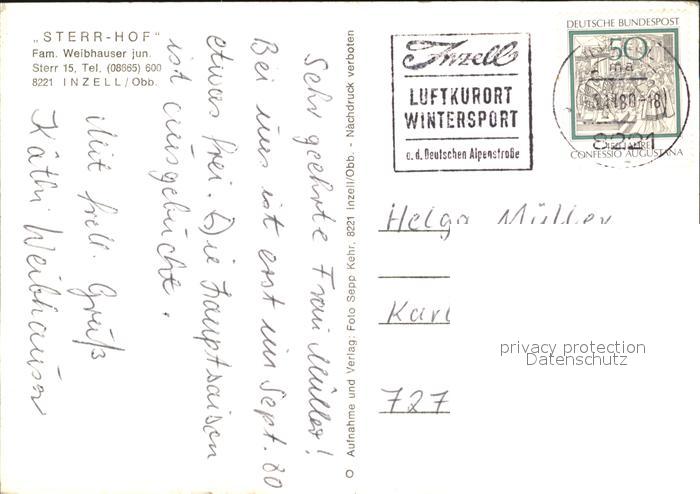 „STERR-HOF"
Fam. Weibhauser jun.
Sterr 15, Tel. (08665) 600
8221 INZELL/Obb.
Sehr geehrte Frau Müller!
Bei uns ist erst im Sept. 80
etwas frei. Die Hauptsaison
ist ausgebucht.
Mit frdl. Gruß
Käthi Weibhauser
Aufnahme und Verlag: Foto Sepp Kehr, 8221 Inzell/Obb. - Nachdruck verboten
Inzell
LUFTKURORT
WINTERSPORT
a. d. Deutschen Alpenstraße
DEUTSCHE BUNDESPOST
50
80-18
8221
450 JAHRE
CONFESSIO AUGUSTANA
Helga Müller
Karl
privacy protection
Datenschutz
727